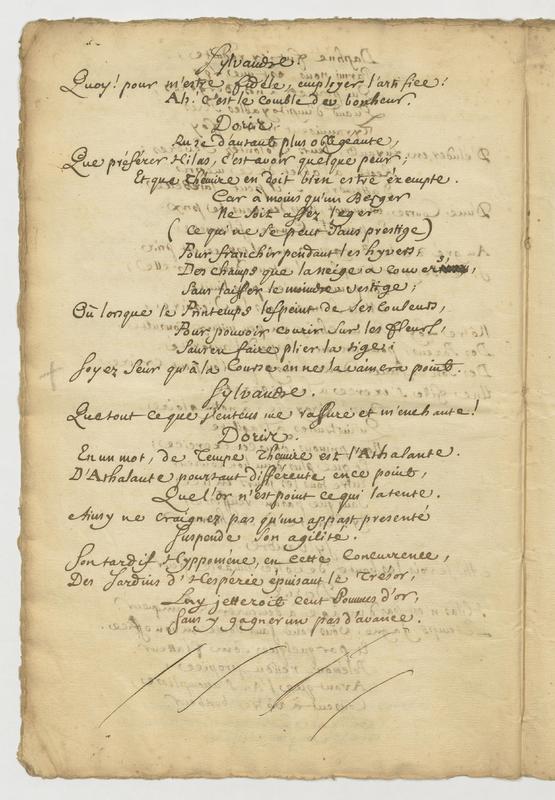 Sylvandre.
Quoy! pour m'estre fidéle, employer l'artifice!
Ah. c'est le comble du bonheur.
Doris.
Ruze d'autant plus obligeante,
Que préférer Hilas, c'est avoir quelque peur;
Et que Thémire en doit bien estre éxempte.
Car à moins qu'un Berger
Ne soit assez leger
(ce qui ne se peut sans prestige)
Pour franchir pendant les hyvers,
Des champs que la neige a couverts,
Sans laisser le moindre vestige;
Où lorsque le Printemps les peint de ses couleurs,
Pour pouvoir courir sur les fleurs,
Sans en faire plier la tige;
Soyez seur qu'à la Course on ne la vaincra point.
Sylvandre.
Que tout ce que j'entens me rassure et m'enchante!
Doris.
En un mot, de Tempé Thémire est l'Athalante.
D'Athalante pourtant differente en ce point,
Que l'or n'est point ce qui la tente.
Ainsy ne craignez pas qu'un appast presenté
Suspende son agilité.
Son tardif Hyppoméne, en cette Concurrence,
Des Jardins d'Hesperie épuisant le Trésor,
Luy jetteroit cent Pommes d'or,
Sans y gagner un pas d'avance.